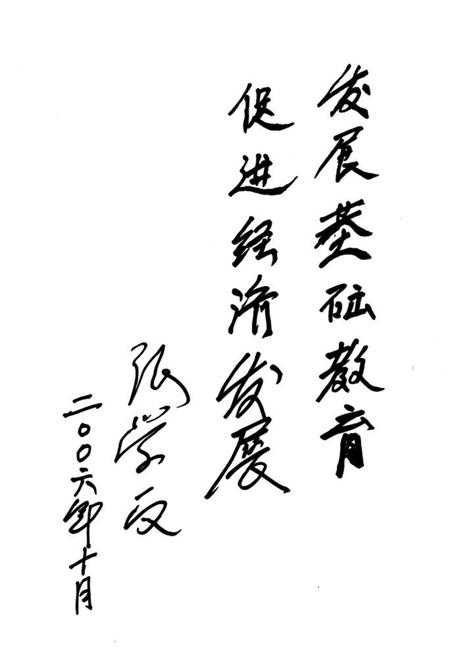 发展基础教育
促进经济发展
张学
二〇〇六年十月